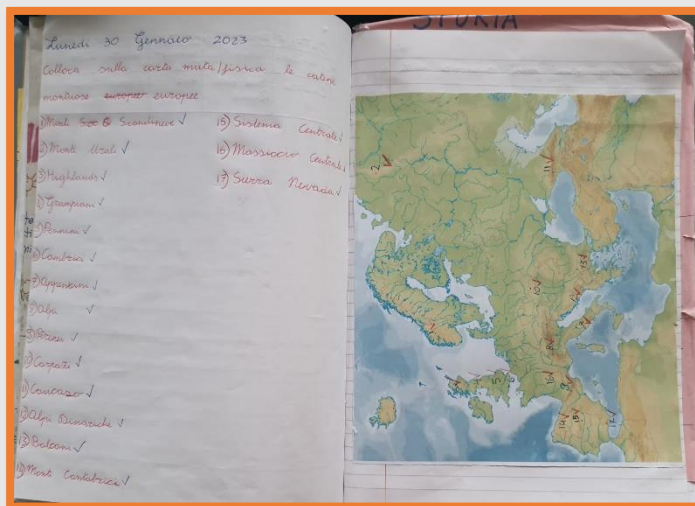 Lunedì 30 Gennaio 2023
Colloca sulla carta muta/fisica le catene
montuose europee europee
1) Monti Scandinavi ✓
2) Monti Urali ✓
3) Highlands ✓
4) Grampiani ✓
5) Pennini ✓
6) Cambrici ✓
7) Appennini ✓
8) Alpi ✓
9) Pirenei ✓
10) Carpazi ✓
11) Caucaso ✓
12) Alpi Dinariche ✓
13) Balcani ✓
14) Monti Cantabrici ✓
15) Sistema Centrale ✓
16) Massiccio Centrale ✓
17) Sierra Nevada ✓
STORIA
2
11
13
10
8
5
16
9
14
15
17